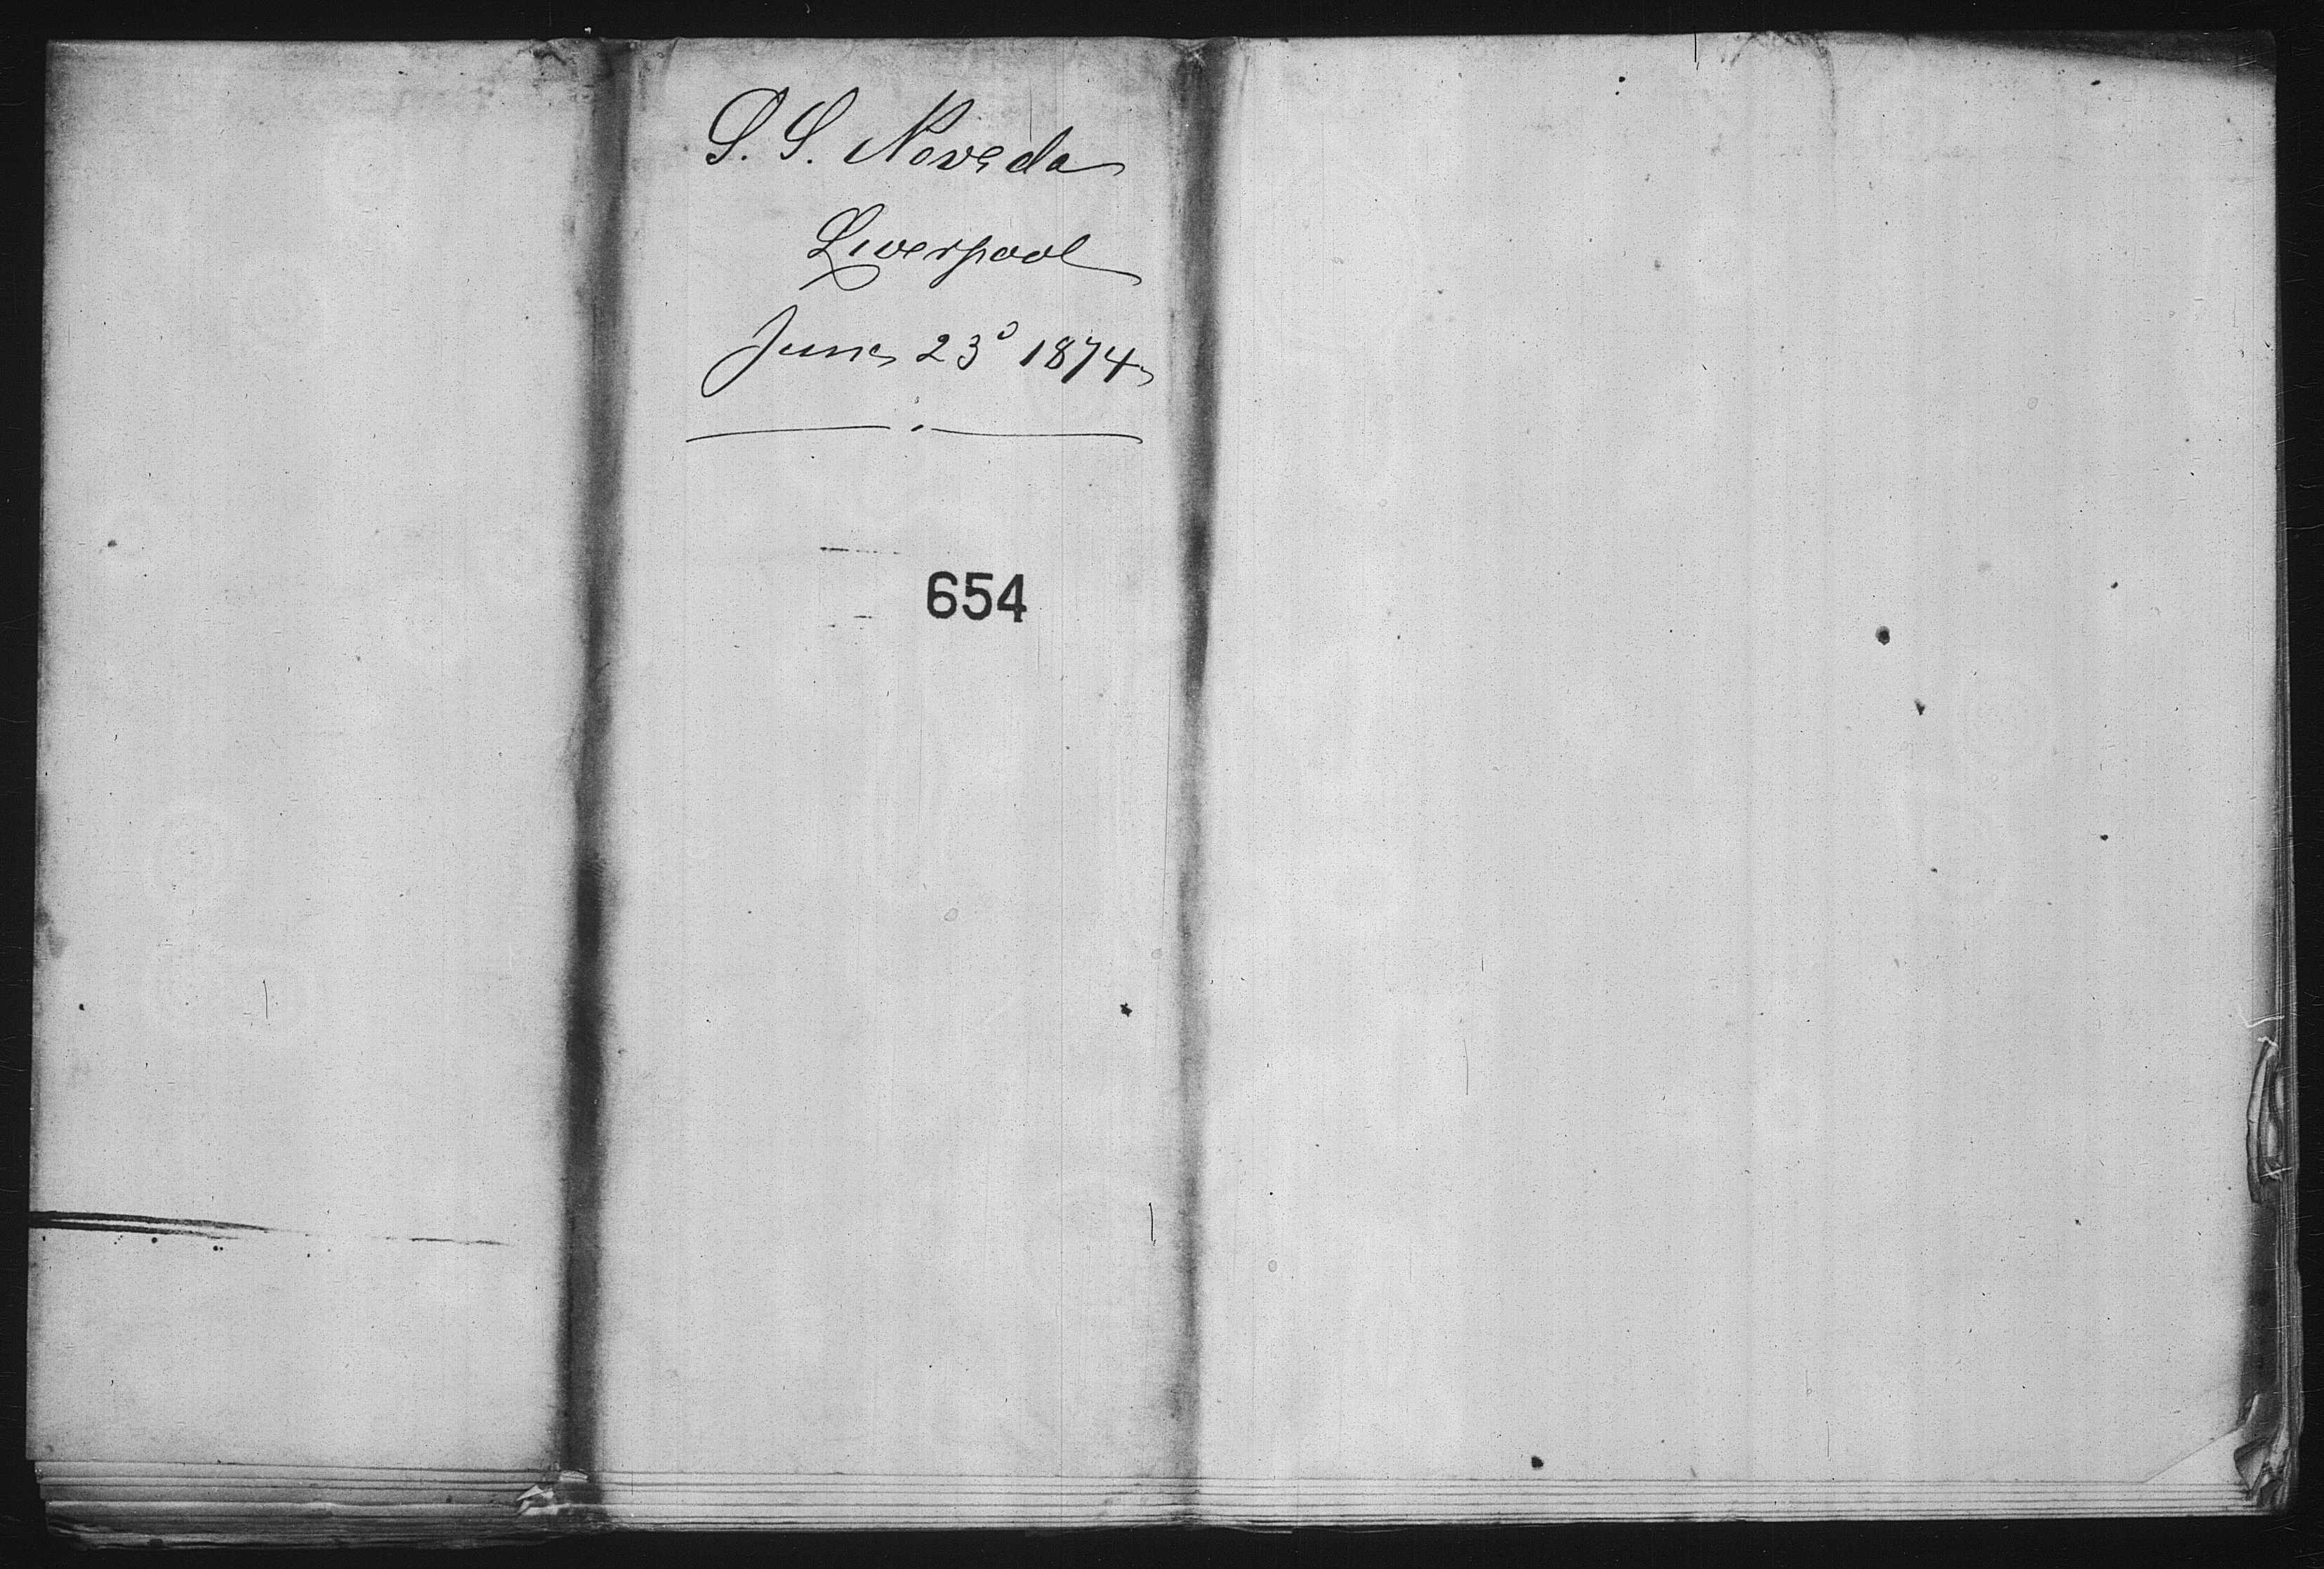 S. S. Nevada
Liverpool
June 23d 1874
654